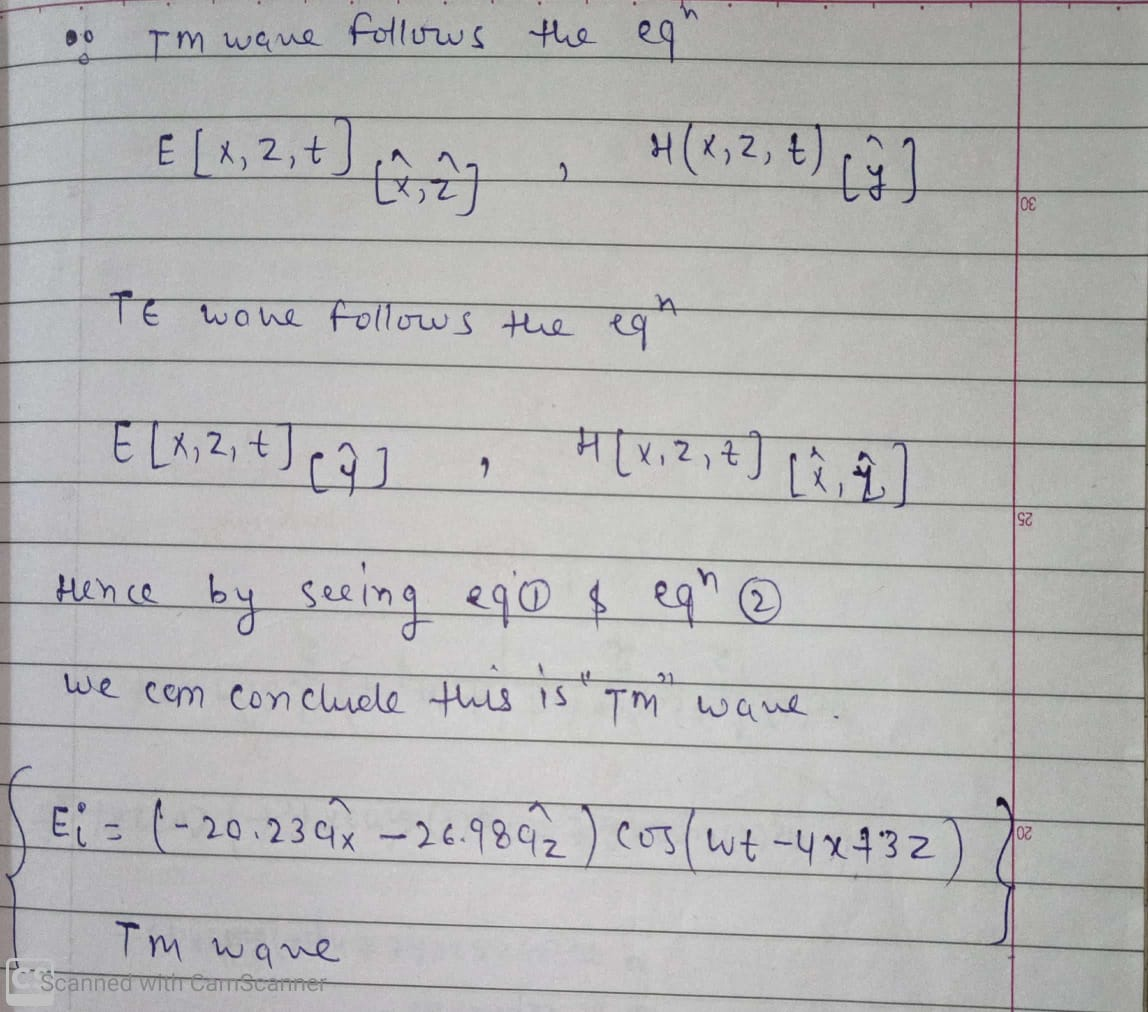 ∴ TM wave follows the eqⁿ
E[x,z,t] [x̂,ẑ] , H(x,z,t) [ŷ]
30
TE wave follows the eqⁿ
E[x,z,t] [ŷ] , H[x,z,t] [x̂,ẑ]
25
Hence by seeing eq① & eqⁿ ②
we can conclude this is "TM" wave.
Ei = (-20.23 âx - 26.98 âz) cos(wt - 4x + 3z)
20
TM wave
CS Scanned with CamScanner